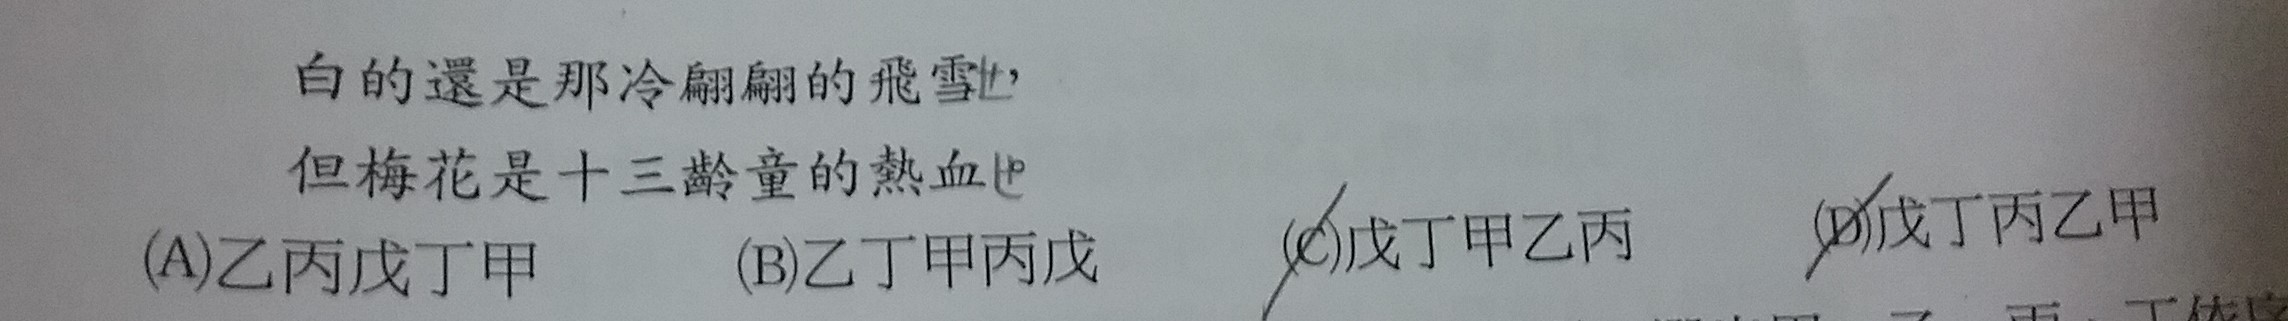 白的還是那冷翩翩的飛雪ㄝ，
但梅花是十三齡童的熱血ㄝ。
(A)乙丙戊丁甲 (B)乙丁甲丙戊 (C)戊丁甲乙丙 (D)戊丁丙乙甲